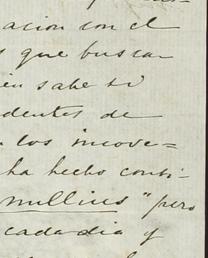 acion con el
s que buscar
ien sabe si
dentes de
los incove=
ha hecho conti-
nullius" pero
cada dia y